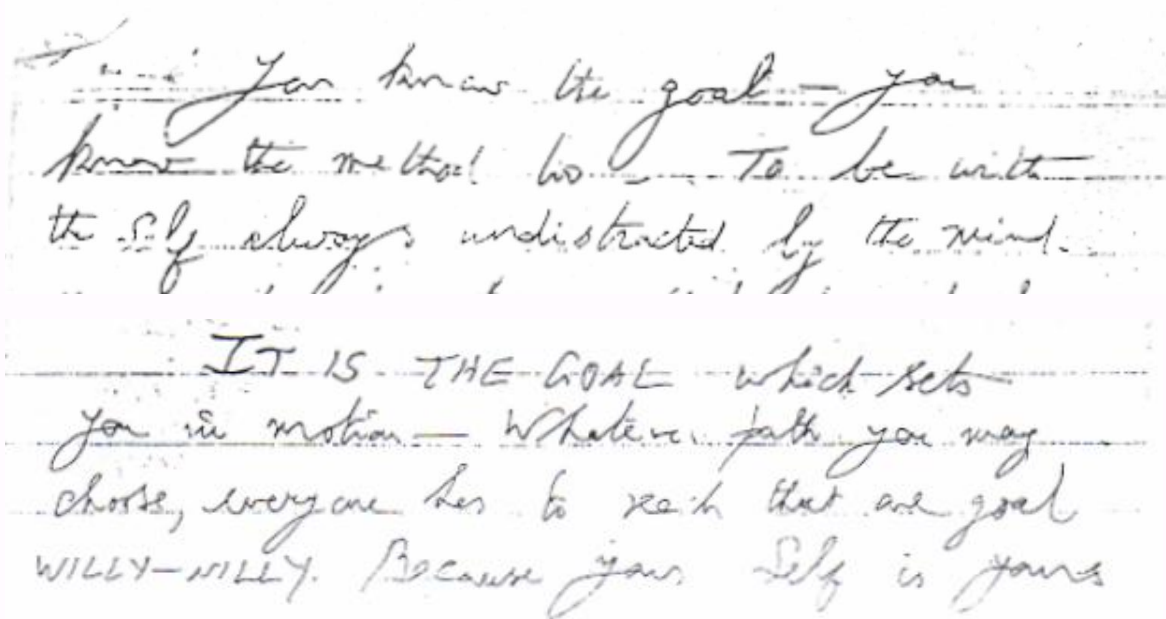 You know the goal — you
know the method too — To be with
the Self always undistracted by the mind.
IT IS THE GOAL which sets
you in motion — Whatever path you may
choose, everyone has to reach that one goal
WILLY-NILLY. Because your Self is yours